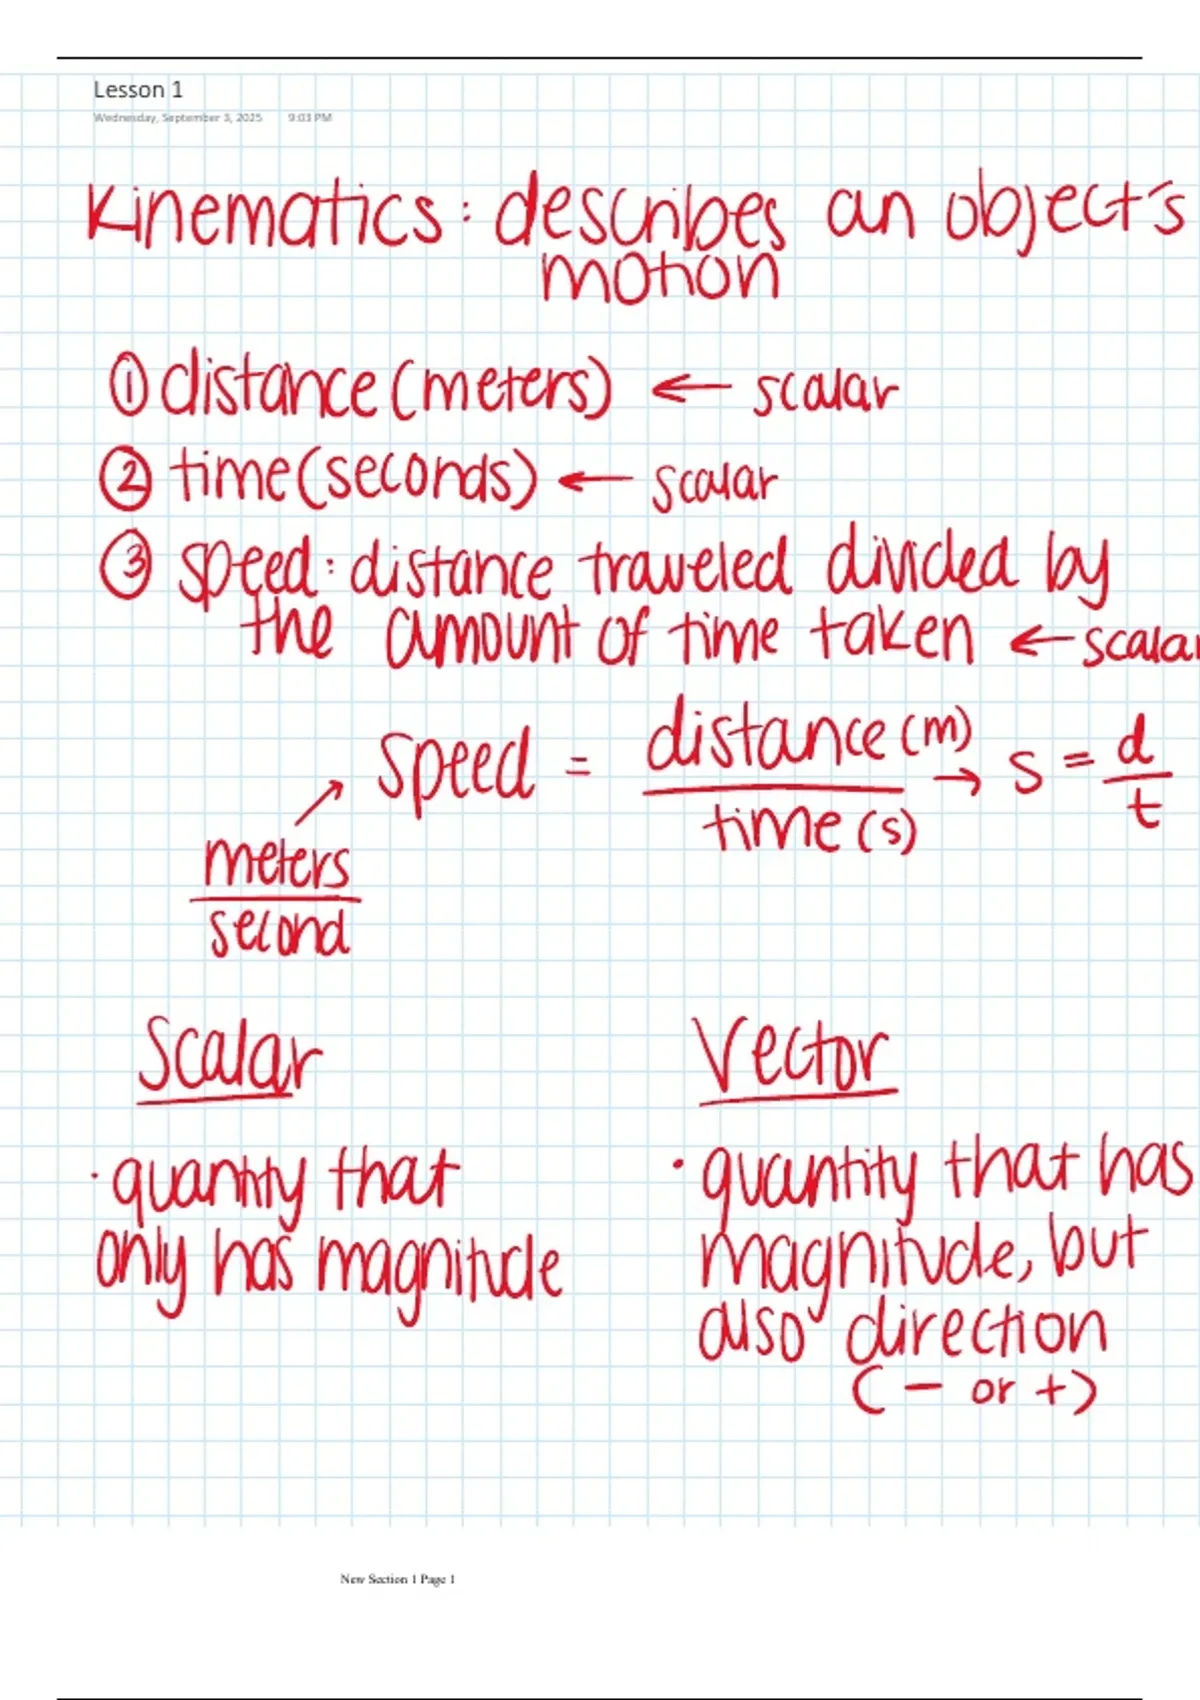 Lesson 1
Wednesday, September 3, 2025 9:03 PM
Kinematics: describes an object's
motion
① distance (meters) ← scalar
② time (seconds) ← scalar
③ speed: distance traveled divided by
the amount of time taken ← scalar
speed = distance (m) / time (s) → s = d / t
meters
second
Scalar Vector
· quantity that
only has magnitude
· quantity that has
magnitude, but
also direction
(- or +)
New Section 1 Page 1